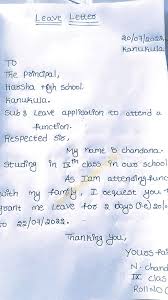 Leave Letter
20/07/2022,
Kanukula.
TO
The Principal,
Harsha High School.
Kanukula.
Sub: Leave application to attend a
function.
Respected Sir,
My Name is Chandana.
Studing in IXth class in our school.
As I am attending func
with my family, I request you
grant me leave for 2 days (i.e)
to 22/07/2022.
Thanking you,
Yours fai
N. Chand
IX class
Roll No